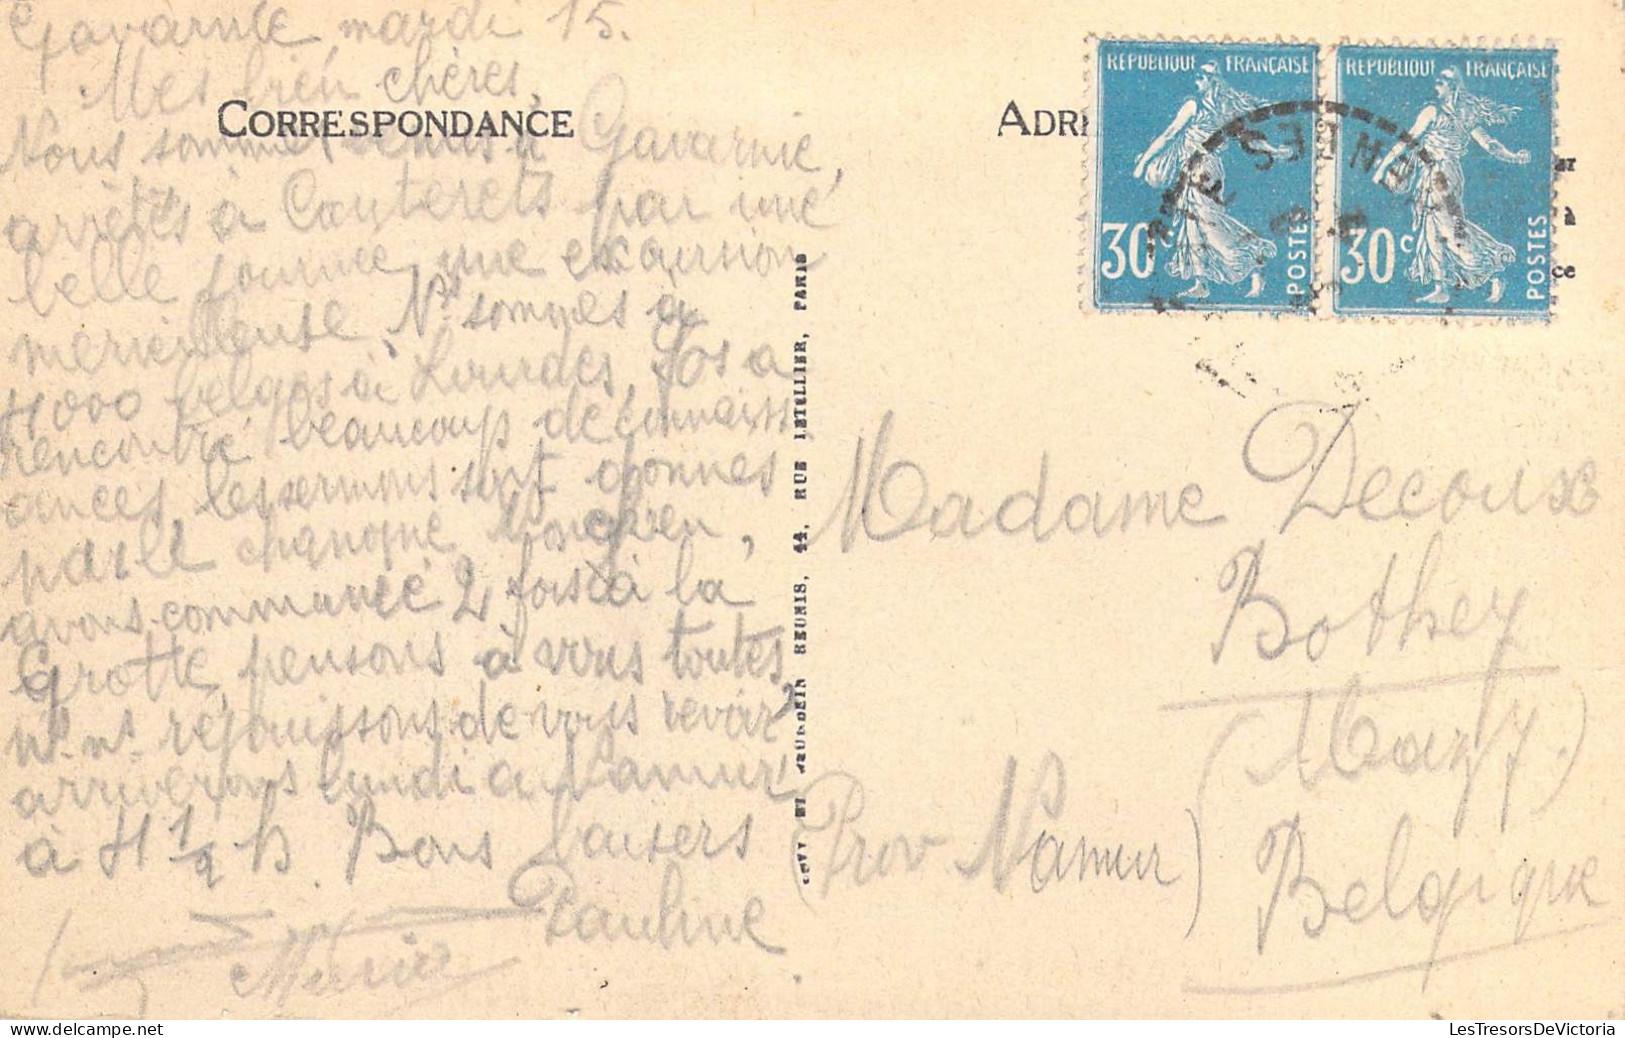 Gavarnie mardi 15.
Mes bien chères,
CORRESPONDANCE
Nous sommes venus à Gavarnie,
arrêtés à Cauterets par une
belle journée, une excursion
merveilleuse Ns sommes à
4000 belges à Lourdes,
rencontré beaucoup de connaiss
ances, les sermons sont donnés
par le chanoine
avons communié 2 fois à la
Grotte, pensons à vous toutes,
ns ns réjouissons de vous revoir
arriverons lundi à Namur
à 4 1/2 h Bons baisers
Pauline
Maria
LEVY ET NEURDEIN REUNIS, 44, RUE LETELLIER, PARIS
ADR
REPUBLIQUE FRANÇAISE
30c
POSTES
REPUBLIQUE FRANÇAISE
30c
POSTES
Madame Decoux
Bothey
(Mazy.)
(Prov Namur)
Belgique
LesTresorsDeVictoria.com